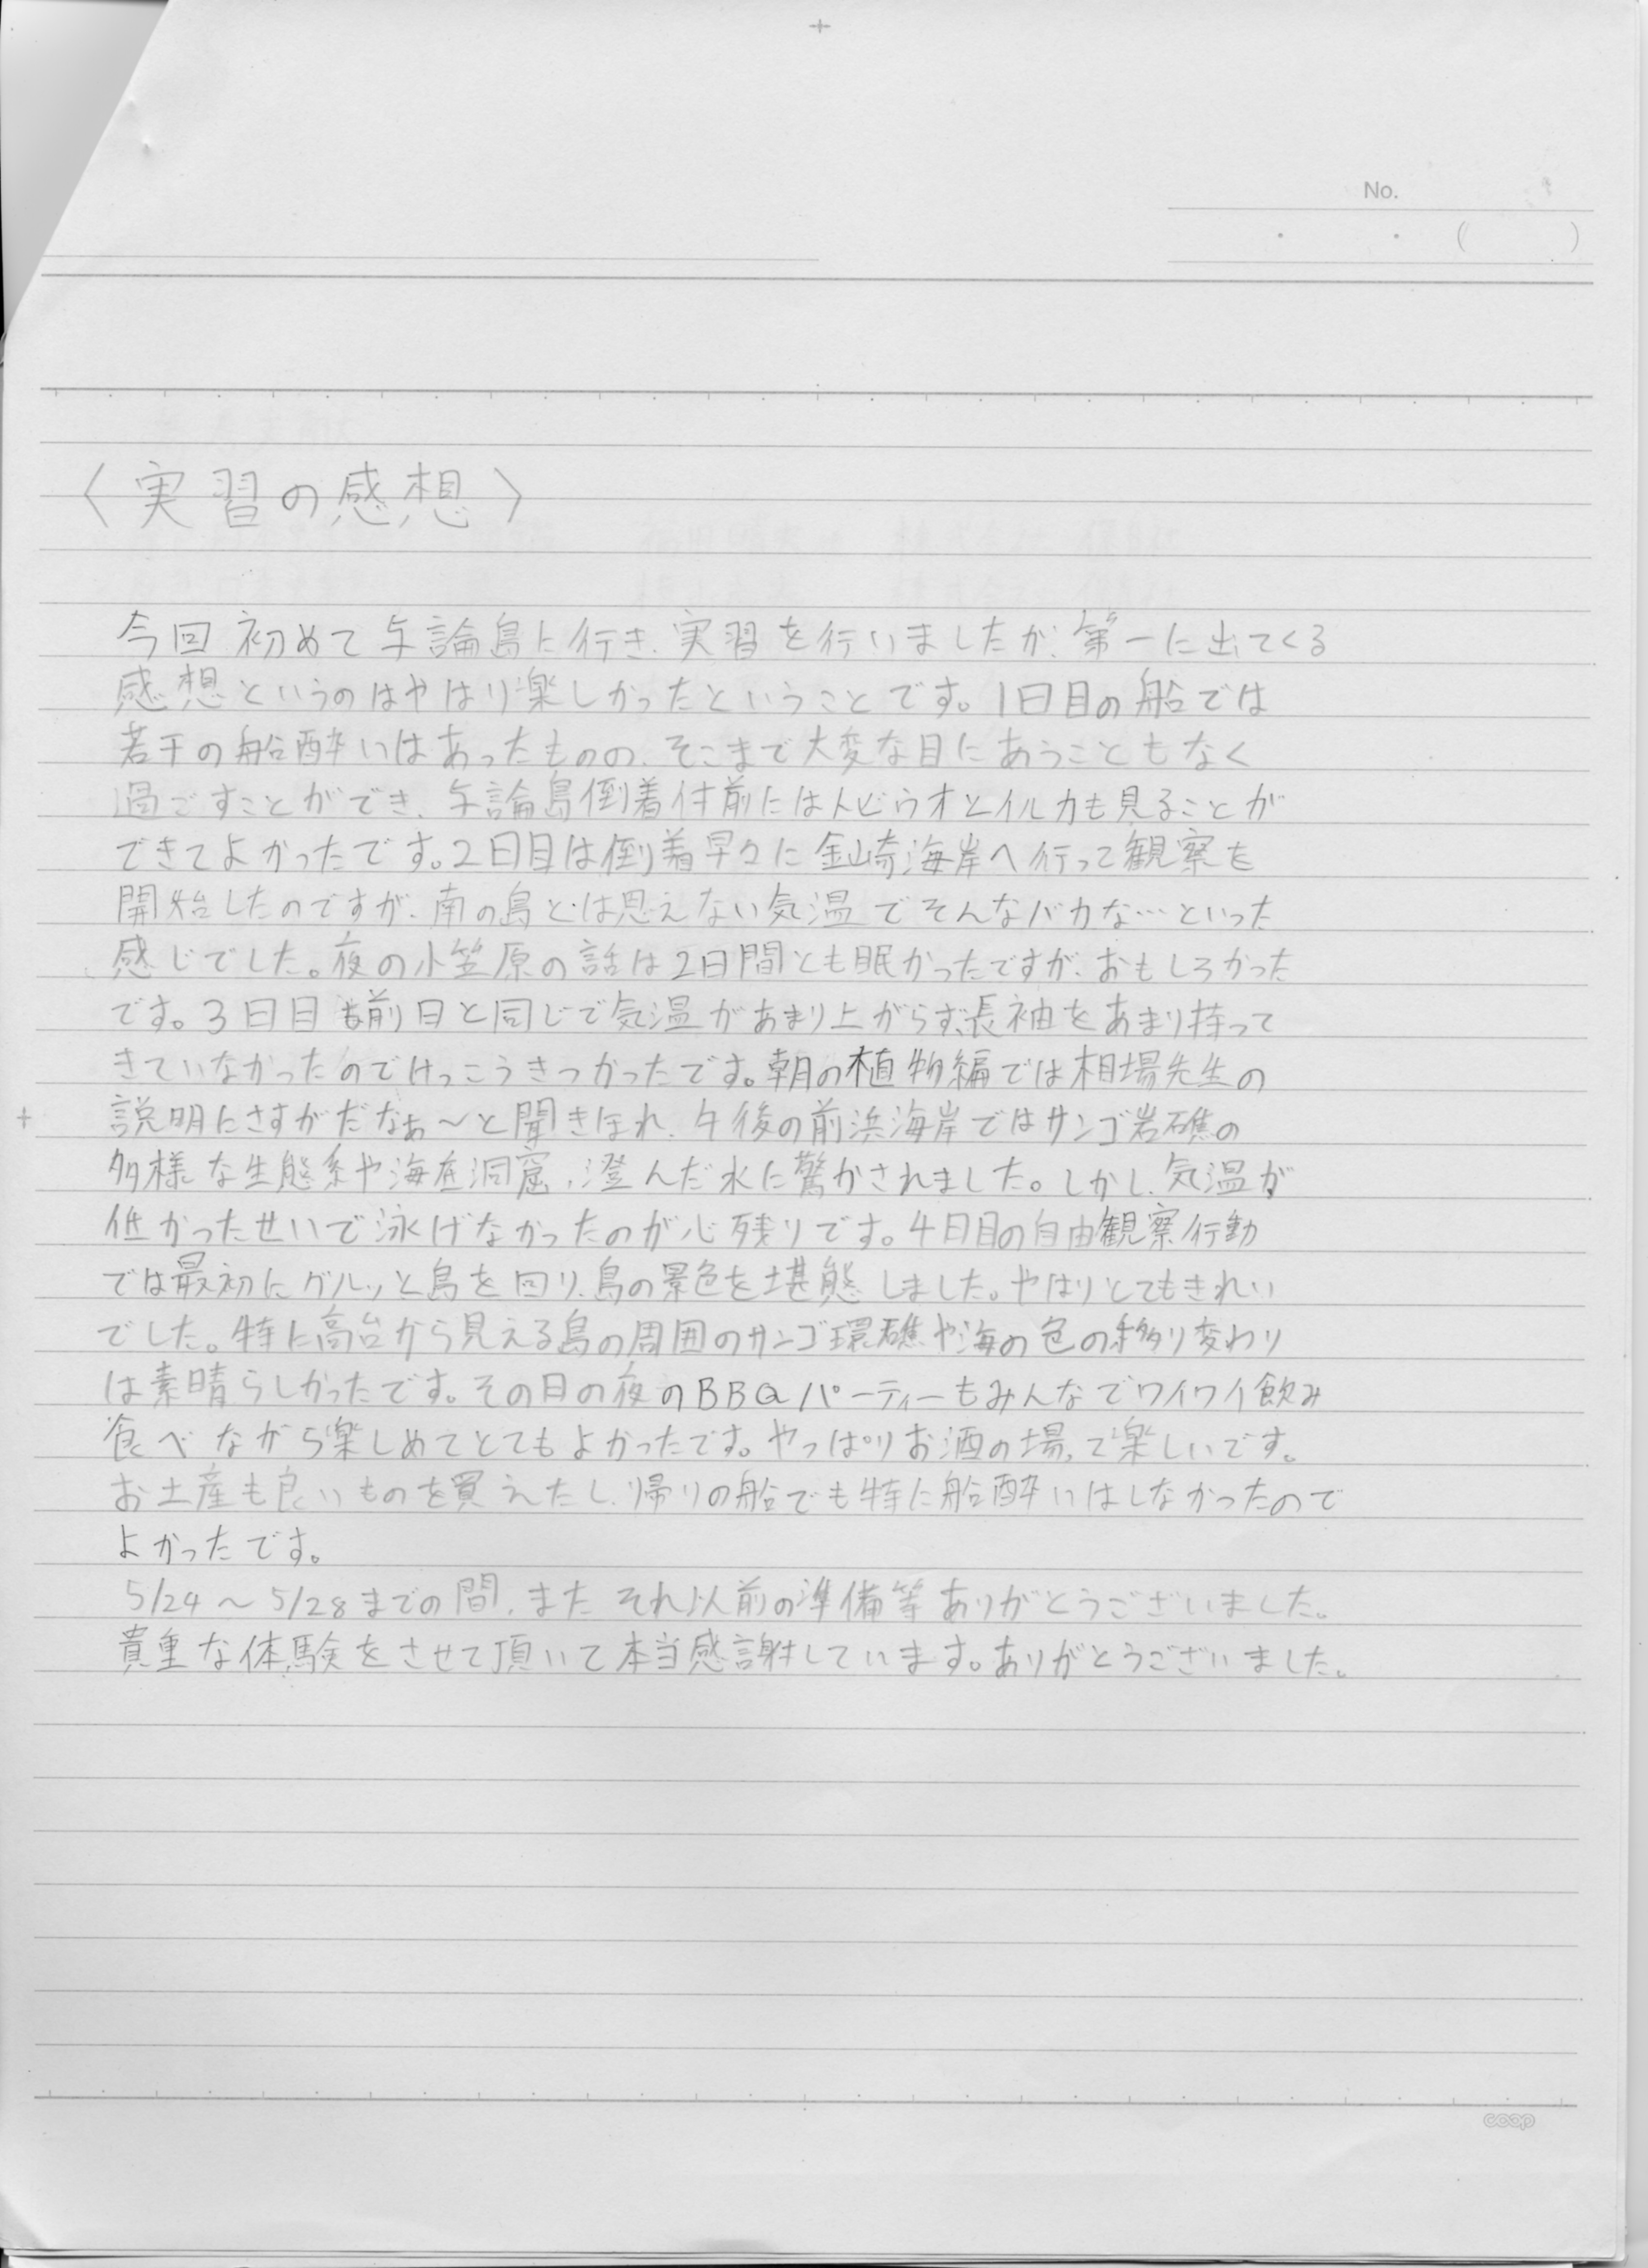 No.
・ ・ ( )
〈実習の感想〉
今回初めて与論島に行き、実習を行いましたが、第一に出てくる
感想というのはやはり楽しかったということです。1日目の船では
若干の船酔いはあったものの、そこまで大変な目にあうこともなく
過ごすことができ、与論島倒着付前にはトビウオとイルカも見ることが
できてよかったです。2日目は倒着早々に金崎海岸へ行って観察を
開始したのですが、南の島とは思えない気温でそんなバカな…といった
感じでした。夜の小笠原の話は2日間とも眠かったですが、おもしろかった
です。3日目も前日と同じで気温があまり上がらず、長袖をあまり持って
きていなかったのでけっこうきつかったです。朝の植物編では相場先生の
説明にさすがだなぁ～と聞きほれ、午後の前浜海岸ではサンゴ岩礁の
多様な生態系や海底洞窟、澄んだ水に驚かされました。しかし、気温が
低かったせいで泳げなかったのが心残りです。4日目の自由観察行動
では最初にグルッと島を回り、島の景色を堪態しました。やはりとてもきれい
でした。特に高台から見える島の周囲のサンゴ環礁や海の色の移り変わり
は素晴らしかったです。その日の夜のBBQパーティーもみんなでワイワイ飲み
食べながら楽しめてとてもよかったです。やっぱりお酒の場って楽しいです。
お土産も良いものを買えたし、帰りの船でも特に船酔いはしなかったので
よかったです。
5/24～5/28までの間、またそれ以前の準備等ありがとうございました。
貴重な体験をさせて頂いて本当感謝しています。ありがとうございました。
coop